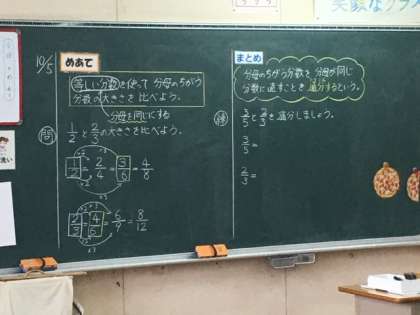 10/5
めあて
等しい分数を使って 分母のちがう
分数の大きさを比べよう。
分母を同じにする
問
1/2 と 2/3 の大きさを比べよう。
1/2 = 2/4 = 3/6 = 4/8
2/3 = 4/6 = 6/9 = 8/12
まとめ
分母のちがう分数を 分母が同じ
分数に直すことを 通分するという。
練
3/5 と 2/3 を通分しましょう。
3/5 =
2/3 =